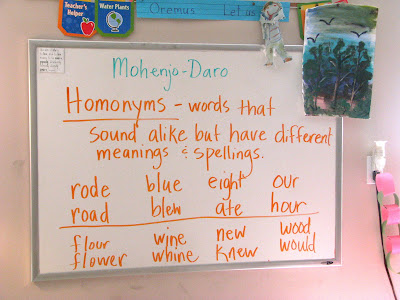 Teacher's Helper
Water Plants
Oremus Let us
Mohenjo-Daro
Homonyms - words that
sound alike but have different
meanings & spellings.
rode blue eight our
road blew ate hour
flour wine new wood
flower whine knew would